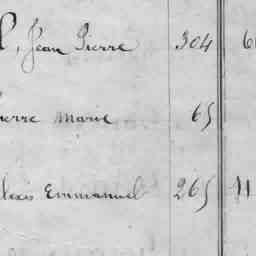 Jean Pierre 304 6
ierre Marie 65
lexis Emmanuel 265 11